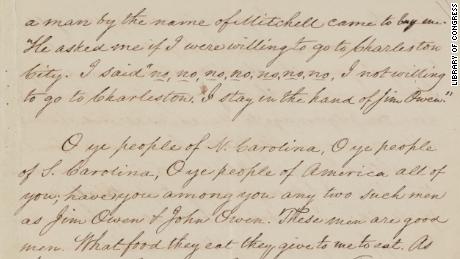 a man by the name of Mitchell came to buy me.
"He asked me if I were willing to go to Charleston
City. I said "no, no, no, no, no, no, no, I not willing
to go to Charleston. I stay in the hand of Jim Owen."
O ye people of N. Carolina, O ye people
of S. Carolina, O ye people of America all of
you; have you among you any two such men
as Jim Owen & John Owen. These men are good
men. What food they eat they give to me to eat. As
LIBRARY OF CONGRESS